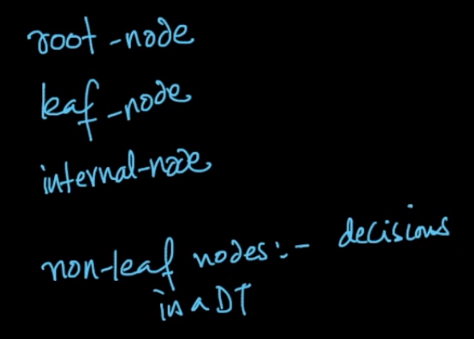 root-node
leaf-node
internal-node
non-leaf nodes:- decisions
in a DT